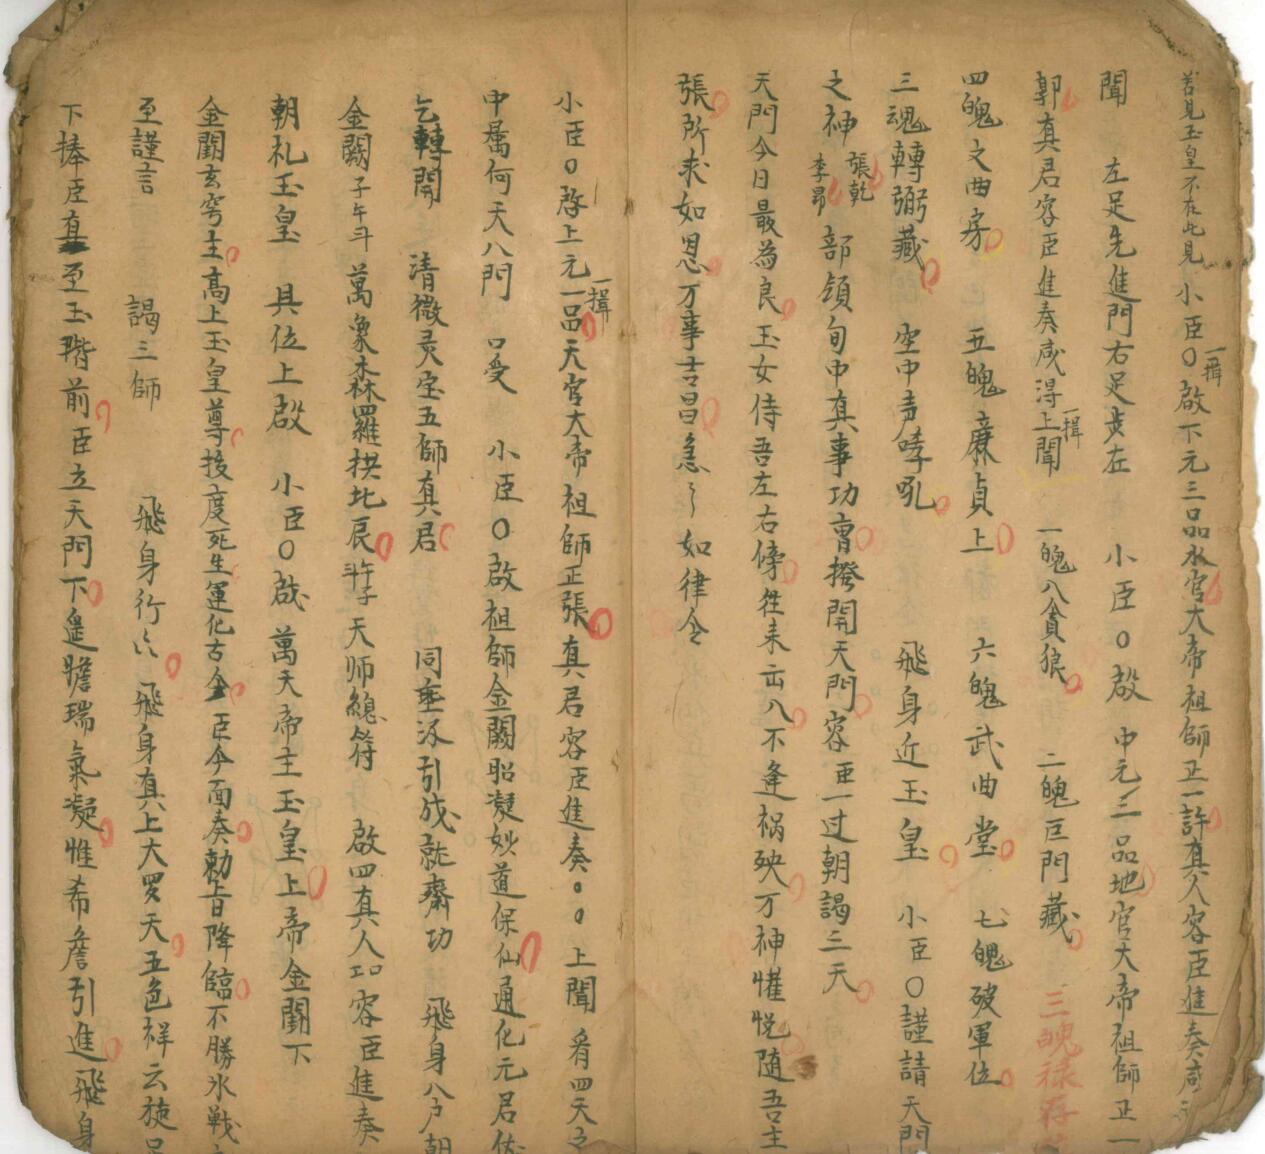 善見玉皇不在此見小臣〇啟下元三品水官大帝祖師正一許真人容臣進奏咸
一揖
聞 左足先進門右足步左 小臣〇啟中元二品地官大帝祖師正一
郭真君容臣進奏咸得上聞 一魄入貪狼 二魄巨門藏 三魄祿存
一揖
四魄文曲房 五魄廉貞上 六魄武曲堂 七魄破軍位
三魂轉弼藏 空中声哮吼 飛身近玉皇 小臣〇謹請天門
之神張乾李昂部領旬中真事功曹撥開天門容臣一过朝謁三天
天門今日最為良玉女侍吾左右傍往来出入不逢祸殃万神懽悦随吾主
張所求如恩万事吉昌急〻如律令
小臣〇啓上元一品天官大帝祖師正張真君容臣進奏〇〇上聞看四天之
一揖
中属何天八門 口受 小臣〇啟祖師金闕昭凝妙道保仙通化元君
乞轉開 清微灵宝五師真君 同垂 引成就齋功 飛身入户朝
金闕子午斗 萬象森羅拱北辰 天师總符 啟四真人 容臣進奏
朝礼玉皇 具位上啟 小臣〇啟萬天帝主玉皇上帝金闕下
金闕玄穹主高上玉皇尊技度死生運化古今臣今面奏勅旨降臨不勝氷戰
至謹言 謁三師 飛身行 飛身真上大罗天五色祥云旋
下捧臣直至玉階前臣立天門下遙瞻瑞氣凝惟希詹引進飛身